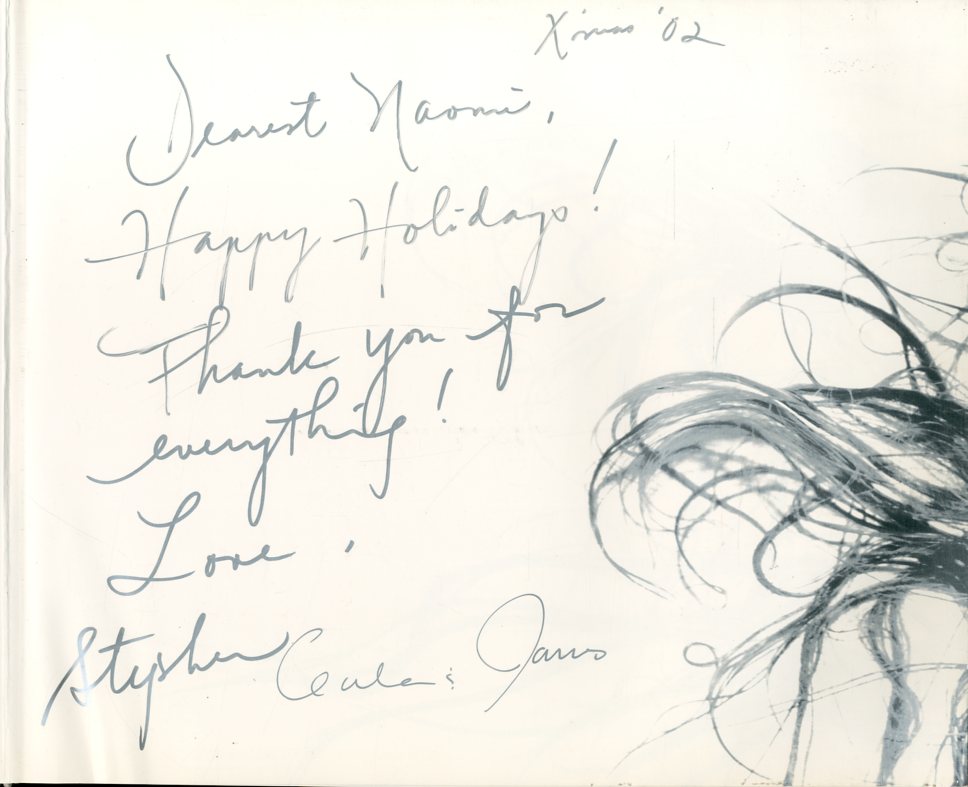 X'mas '02
Dearest Naomi,
Happy Holidays!
Thank you for
everything!
Love,
Stephen
&